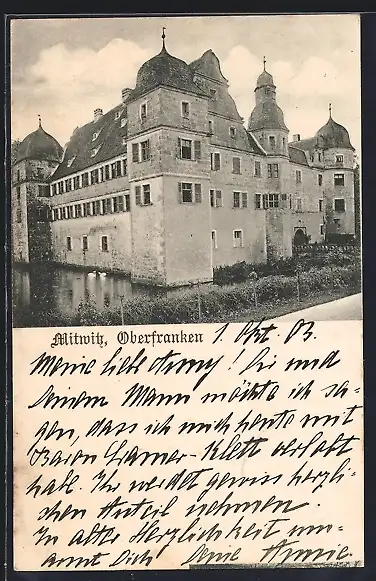 Mitwitz, Oberfranken 1. Okt. 03.
Meine liebe Army! Dir und
Deinem Mann möchte ich sa-
gen, dass ich mich heute mit
Baron Cramer-Klett verlobt
habe. Ihr werdet gewiss herzli-
chen Anteil nehmen.
In alter Herzlichkeit um-
armt Dich Deine Annie.